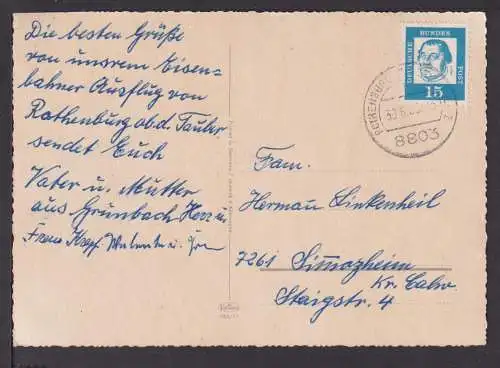 Die besten Grüße
von unsrem Eisen-
bahner Ausflug von
Rothenburg ob.d. Tauber
sendet Euch
Vater u. Mutter
aus Grünbach Herz u.
Frau
DEUTSCHE BUNDESPOST
15
8803
Fam.
Hermann Linkenheil
7261 Simmozheim
Kr. Calw
Staigstr. 4